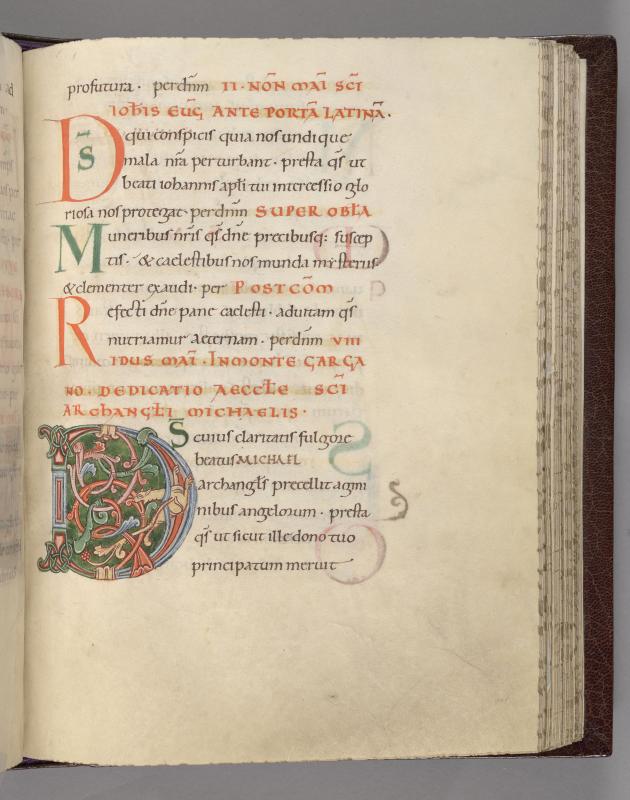 profutura · perdnm̄ II · NŌN MAĪ SC̄I
IOHIS EUG̃ ANTE PORTĀ LATINĀ ·
DS̄ qui conspicis quia nos undique
mala nr̄a perturbant · presta qs̄ ut
beati iohannis apłi tui intercessio glo
riosa nos protegat · perdnm̄ SUPER OBŁA
Muneribus nr̄is qs̄ dn̄e precibusq: suscep
tis · & caelestibus nos munda mysteriis
& clementer exaudi · per POSTCŌM
Refecti dn̄e pane caelesti · aduitam qs̄
nutriamur aeternam · perdnm̄ VIII
IDUS MAĪ · IN MONTE GARGA
NO · DEDICATIO AECCŁE SC̄I
ARCHANGŁI MICHAELIS ·
DS̄ cuius claritatis fulgore
beatus MICHAEL
archangłs precellit agmi
nibus angelorum · presta
qs̄ ut sicut ille dono tuo
principatum meruit